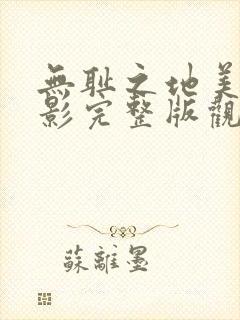 無耻之地美
影完整版觀
蘇離墨